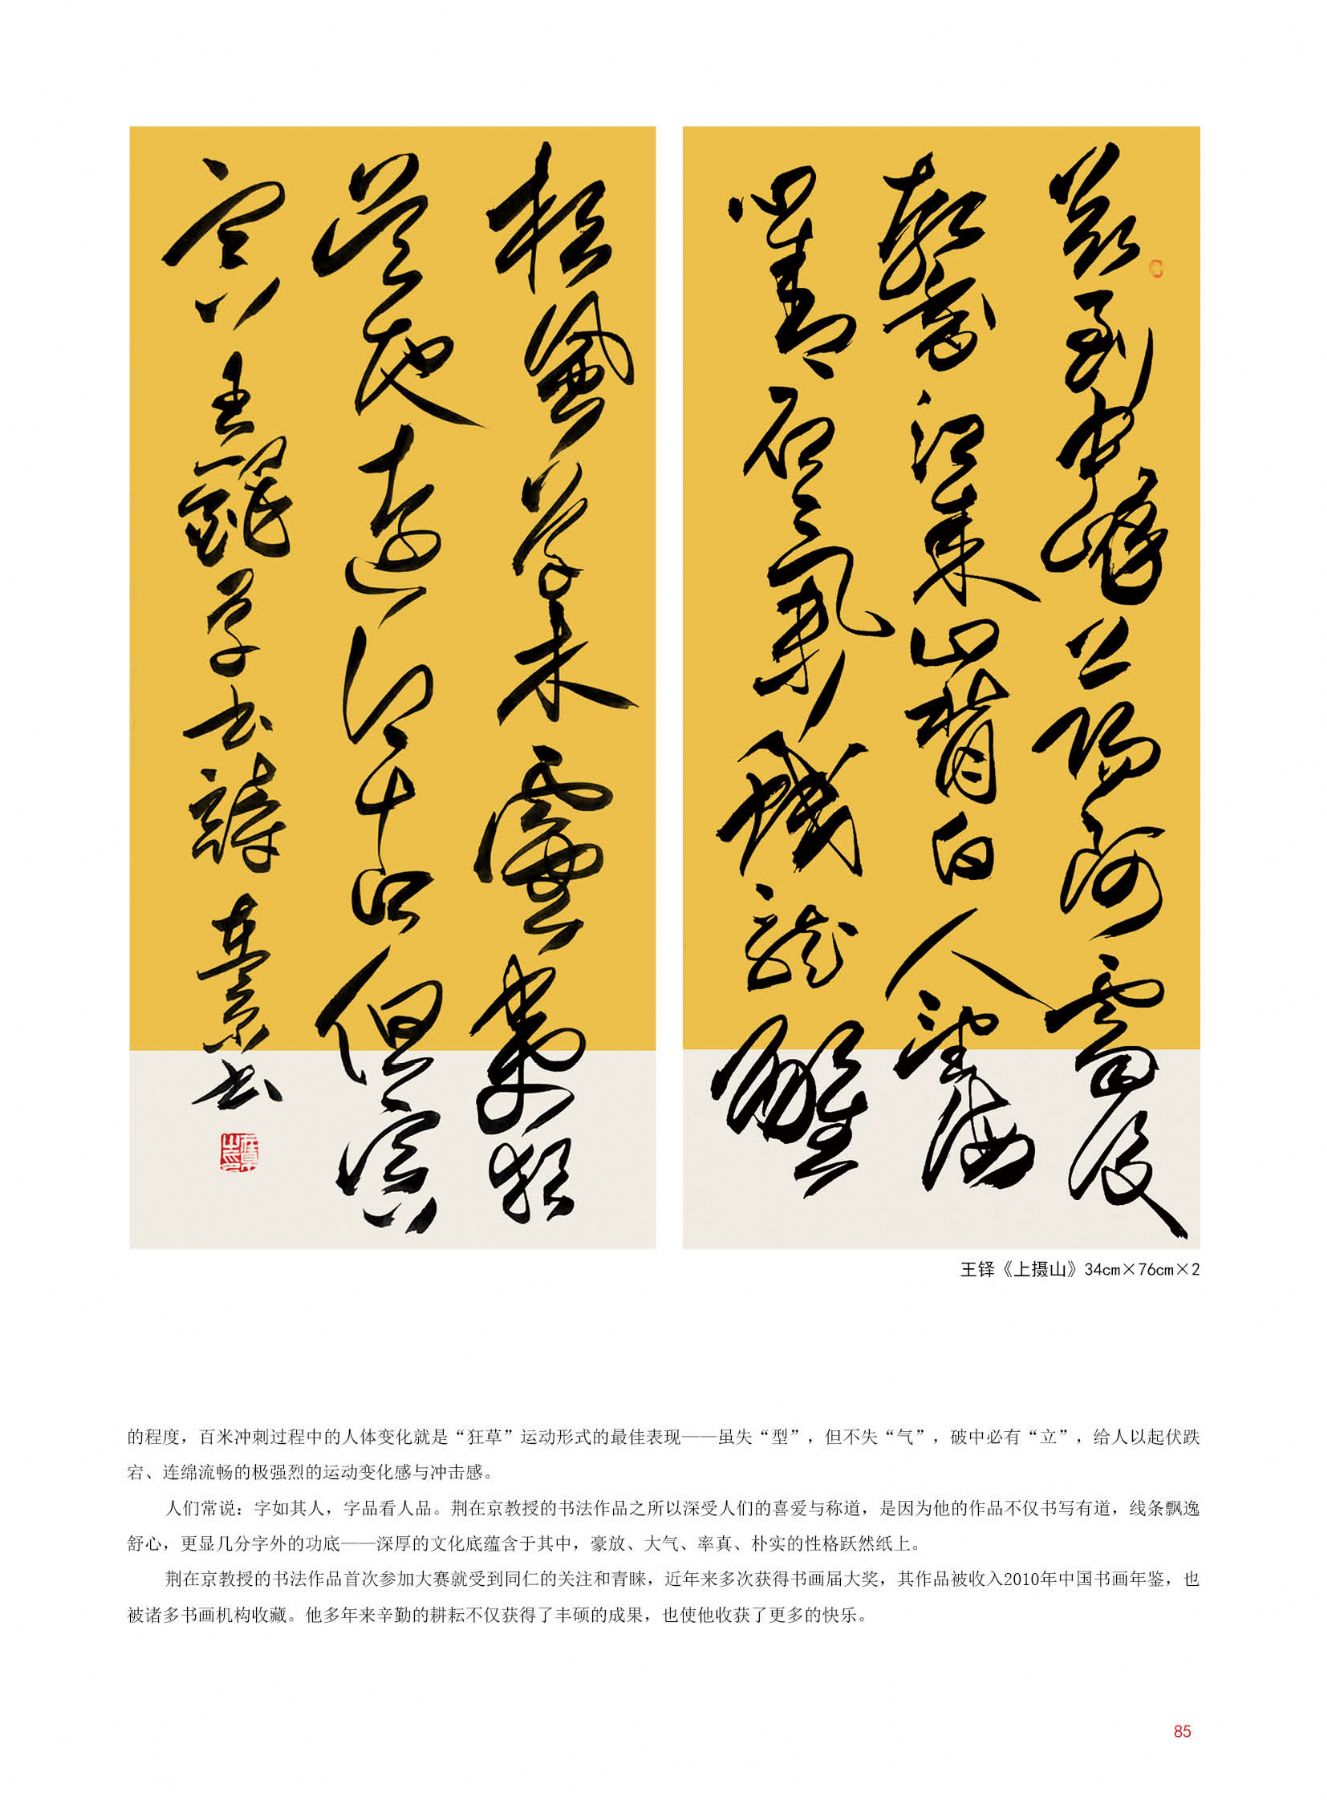 到中峰 陽阿
江来山背白人望海
石氣 龍
松風
地遠 但冥
冥 王鐸草书詩 在京书
王铎《上摄山》34cm×76cm×2
的程度，百米冲刺过程中的人体变化就是“狂草”运动形式的最佳表现——虽失“型”，但不失“气”，破中必有“立”，给人以起伏跌
宕、连绵流畅的极强烈的运动变化感与冲击感。
人们常说：字如其人，字品看人品。荆在京教授的书法作品之所以深受人们的喜爱与称道，是因为他的作品不仅书写有道，线条飘逸
舒心，更显几分字外的功底——深厚的文化底蕴含于其中，豪放、大气、率真、朴实的性格跃然纸上。
荆在京教授的书法作品首次参加大赛就受到同仁的关注和青睐，近年来多次获得书画届大奖，其作品被收入2010年中国书画年鉴，也
被诸多书画机构收藏。他多年来辛勤的耕耘不仅获得了丰硕的成果，也使他收获了更多的快乐。
85